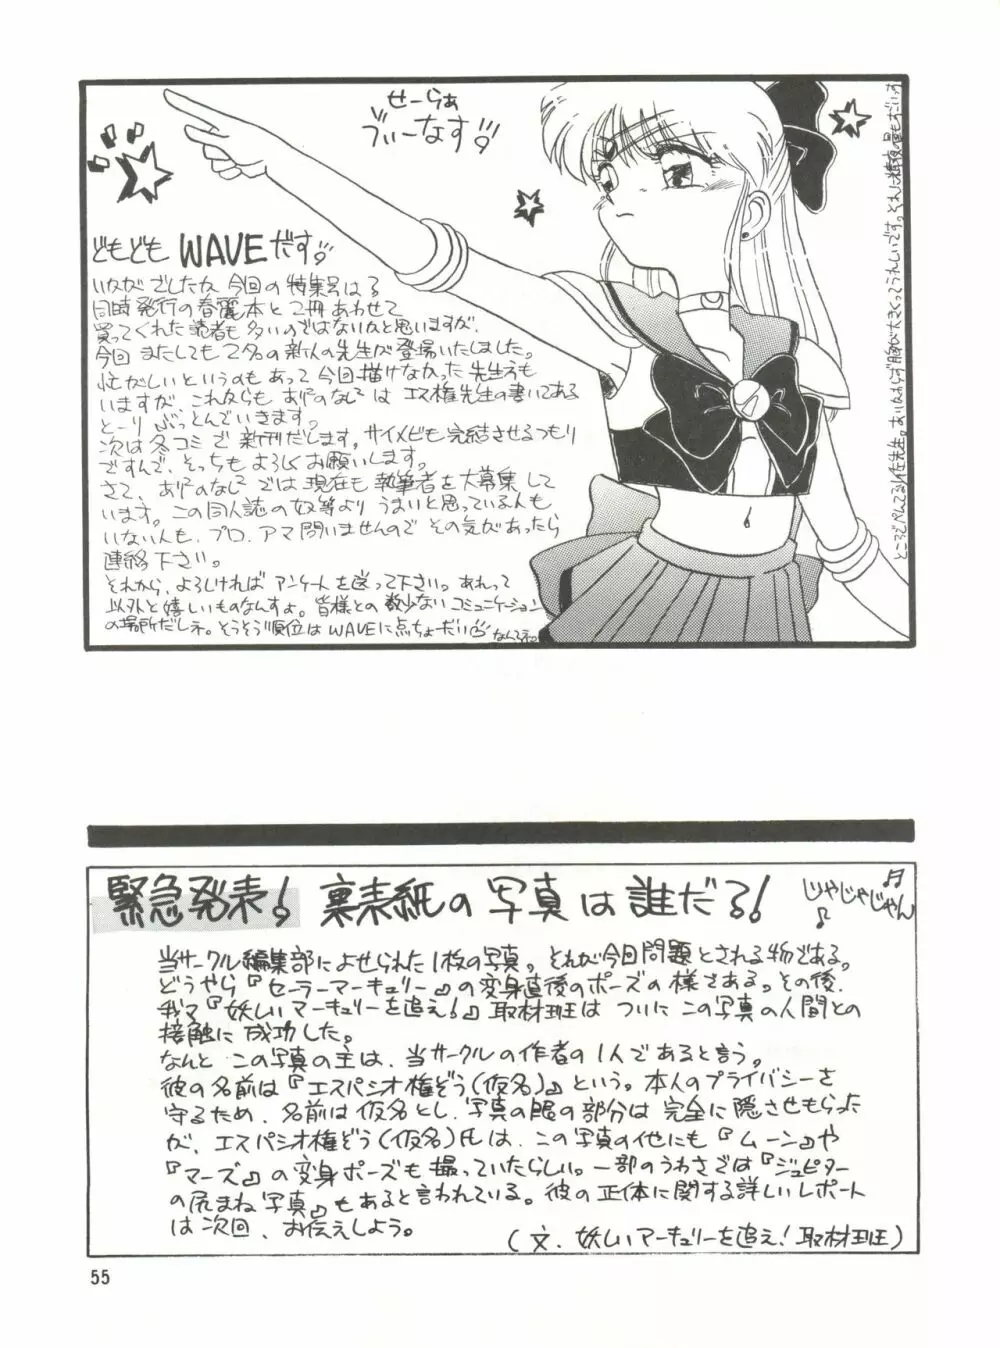 せーらぁ
ブぃーなす!
どもども WAVEだす!
いかがでしたか 今回の特集号は?
同時発行の春麗本と2冊あわせて
買ってくれた読者も多いのではないかと思いますが、
今回またしても2名の新人の先生が登場いたしました。
忙がしいというのもあって今回描けなかった先生方も
いますが、これからも ありのなし²は エス権先生の書いてある
とーり ぶっとんでいきます。
次は冬コミで新刊だします。サイメビも完結させるつもり
ですんで、そっちもよろしくお願いします。
さて、ありのなし²では現在も執筆者を大募集して
います。この同人誌の奴等よりうまいと思っている人も
いない人も、プロ、アマ問いませんので その気があったら
連絡下さい。
それから、よろしければアンケートを送って下さい。あれって
以外と嬉しいものなんすよ。皆様との数少ないコミュニケーション
の場所だしネ。そうそう順位はWAVEに点ちょーだい
なんてネっ
緊急発表! 裏表紙の写真は誰だ?!
じゃじゃじゃん
当サークル編集部によせられた1枚の写真。それが今回問題とされる物である。
どうやら『セーラーマーキュリー』の変身直後のポーズの様さある。その後、
我々『妖しいマーキュリーを追え!』取材班は ついに この写真の人間との
接触に成功した。
なんと この写真の主は、当サークルの作者の1人であると言う。
彼の名前は『エスパシオ権ぞう(仮名)』という。本人のプライバシーを
守るため、名前は仮名とし、写真の眼の部分は完全に隠させもらった
が、エスパシオ権ぞう(仮名)氏は、この写真の他にも『ムーン』や
『マーズ』の変身ポーズも撮っていたらしい。一部のうわさでは『ジュピター
の尻まね写真』もあると言われている。彼の正体に関する詳しいレポート
は次回、お伝えしよう。
(文、妖しいマーキュリーを追え!取材班)
55